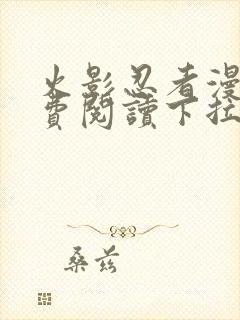 火影忍者漫
費閱讀下拉
桑兹